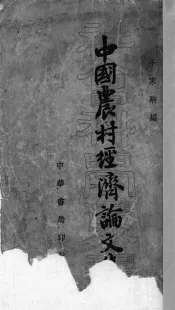 千家駒編
中國農村經濟論文
中華書局印